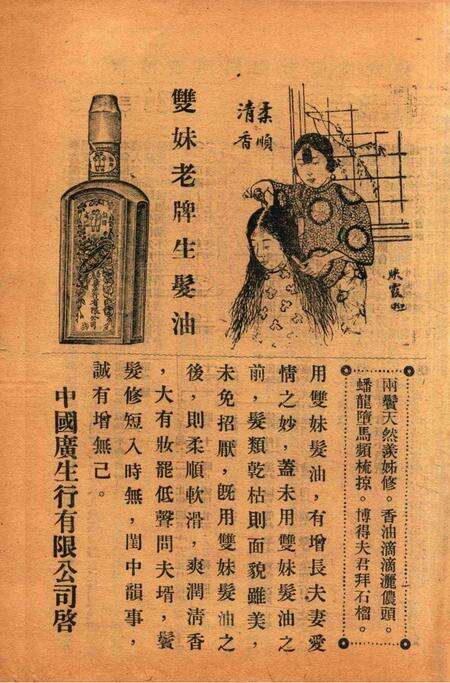 柔順
清香
雙妹老牌生髮油
兩鬢天然羨姊修。香油滴滴灑儂頭。
蟠龍墮馬頻梳掠。博得夫君拜石榴。
用雙妹髮油，有增長夫妻愛
情之妙，蓋未用雙妹髮油之
前，髮類乾枯則面貌雖美，
未免招厭，旣用雙妹髮油之
後，則柔順軟滑，爽潤清香
，大有妝罷低聲問夫壻，鬢
髮修短入時無，閨中韻事，
誠有增無已。
中國廣生行有限公司啓